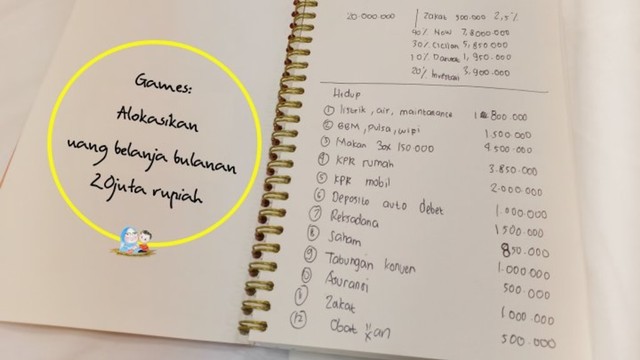 Games:
Alokasikan
uang belanja bulanan
20juta rupiah
20.000.000
Zakat 500.000 2,5%
40% Now 7,8000.000
30% Cicilan 5,850.000
10% Darurat 1,950.000
20% Investasi 3.900.000
Hidup
① listrik, air, maintanance 1 800.000
② BBM, pulsa, wifi 1.500.000
③ Makan 30x 150.000 4.500.000
④ KPR rumah 3.850.000
⑤ KPR mobil 2.000.000
⑥ Deposito auto debet 1.000.000
⑦ Reksadana 1.500.000
⑧ Saham 850.000
⑨ Tabungan konven 1.000.000
⑩ Asuransi 500.000
⑪ Zakat 1.000.000
⑫ Obat" an 500.000